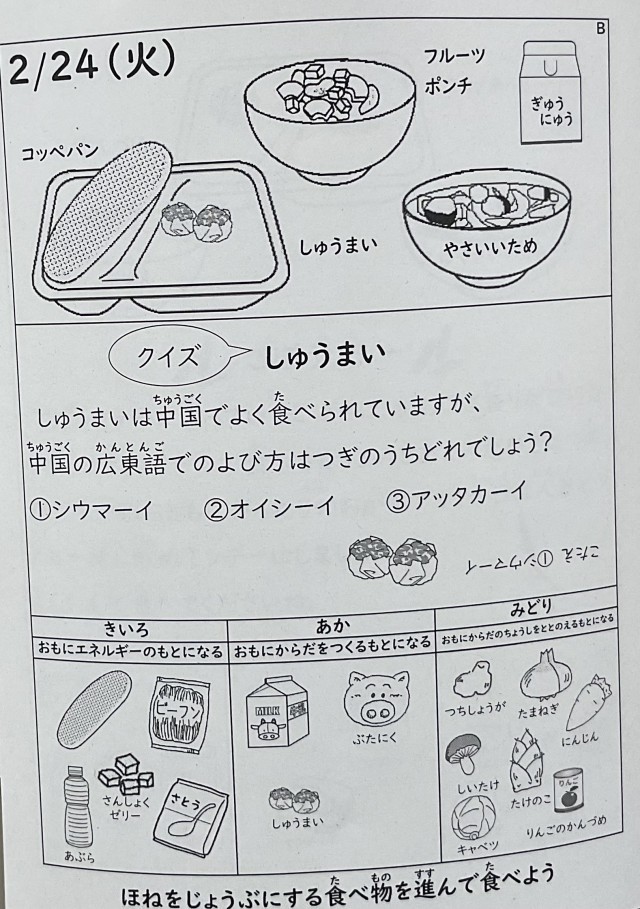 B
2/24(火)
フルーツ
ポンチ
ぎゅう
にゅう
コッペパン
しゅうまい
やさいいため
クイズ
しゅうまい
しゅうまいは中国でよく食べられていますが、
中国の広東語でのよび方はつぎのうちどれでしょう?
①シウマーイ ②オイシーイ ③アッタカーイ
こたえ ①シウマーイ
きいろ
おもにエネルギーのもとになる
ビーフン
さんしょく
ゼリー
さとう
あぶら
あか
おもにからだをつくるもとになる
MILK
ぶたにく
しゅうまい
みどり
おもにからだのちょうしをととのえるもとになる
つちしょうが
たまねぎ
にんじん
しいたけ
たけのこ
りんご
キャベツ
りんごのかんづめ
ほねをじょうぶにする食べ物を進んで食べよう